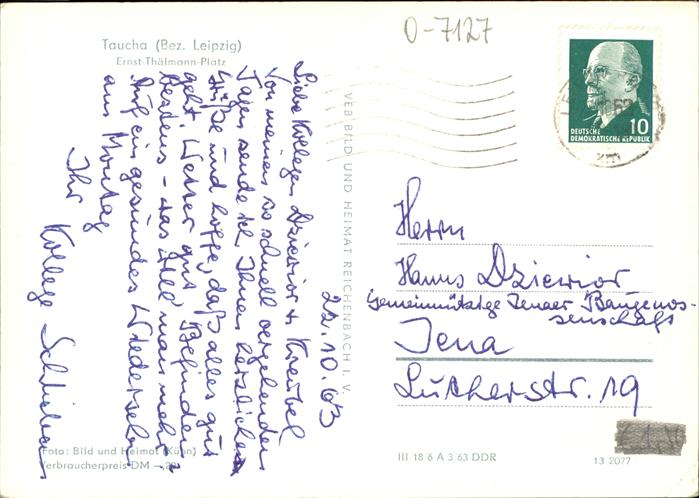 O-7127
Taucha (Bez. Leipzig)
Ernst-Thälmann-Platz
22.10.63
Liebe Kollegen Dziewior u. Kneubel
Von meinen so schnell vergehenden
Tagen sende ich Ihnen herzliche
Grüße und hoffe, daß alles gut
geht. Wetter gut, Befinden
bestens - was will man mehr?
Auf ein gesundes Wiedersehn
am Montag
Ihr
Kollege
VEB BILD UND HEIMAT REICHENBACH I. V.
10
DEUTSCHE
DEMOKRATISCHE REPUBLIK
Herrn
Hanns Dziewior
Gemeinnützige Jenaer Baugenos-
senschaft
Jena
Lutherstr. 19
Foto: Bild und Heimat (Kühn)
Verbraucherpreis DM
III 18 6 A 3/63 DDR
13 2077